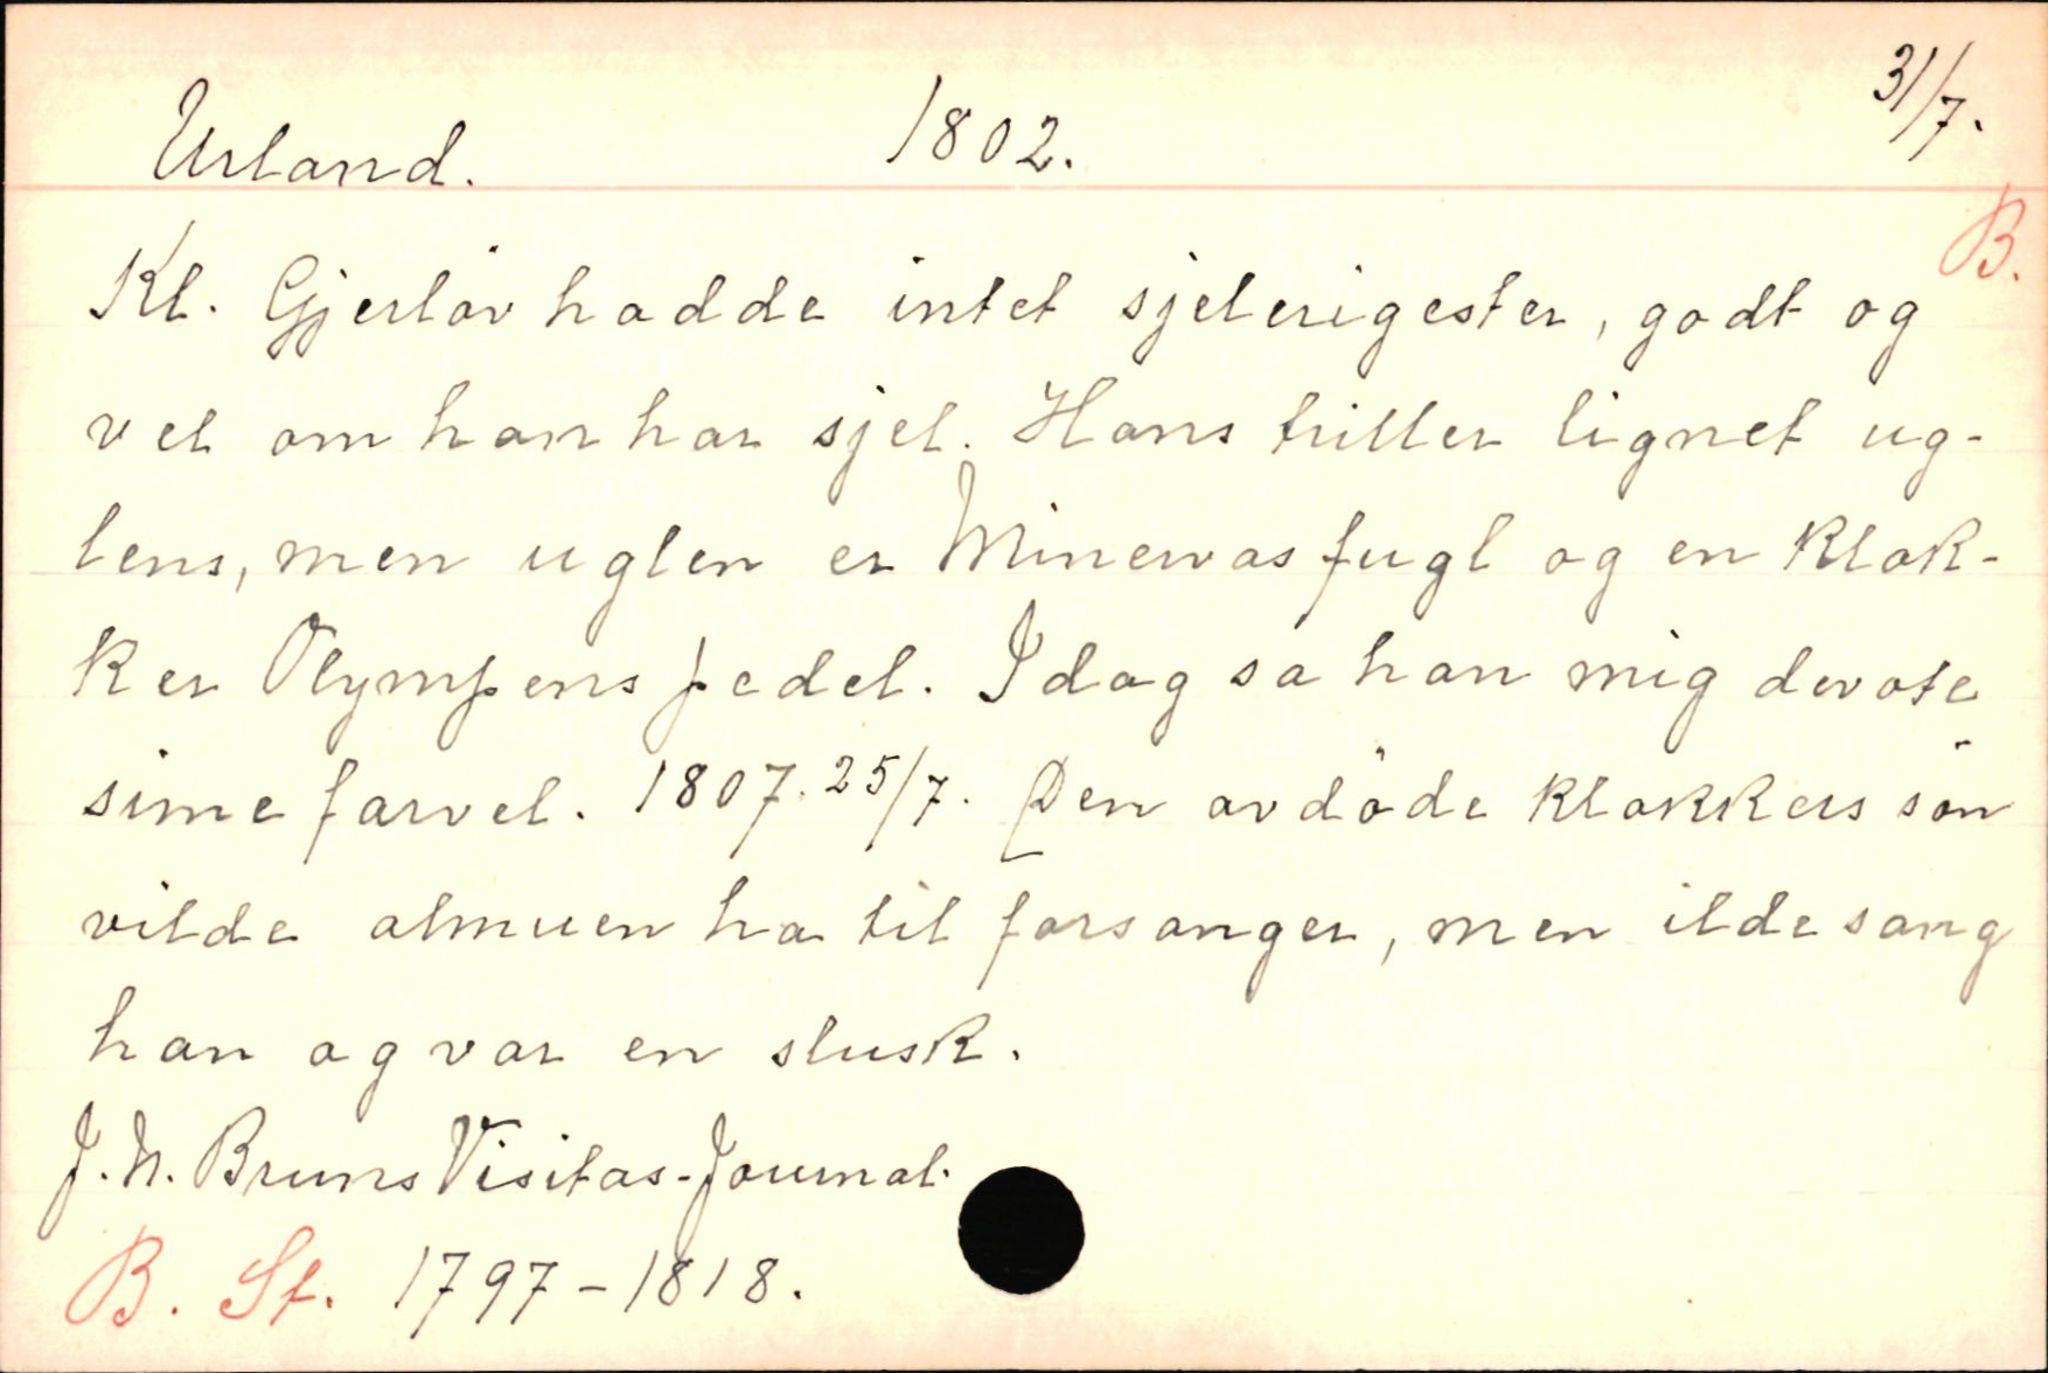 Urland. 1802. 31/7.
B.
Kl. Gjerløv hadde intet sjelerigester, godt og
vel om han har sjel. Hans triller lignet ug-
lens, men uglen er Minervas fugl og en klok-
ker Olympens pedel. Idag sa han mig devote
sime farvel. 1807. 25/7. Den avdøde klokkers søn
vilde almuen ha til forsanger, men ilde sang
han og var en slusk.
J. N. Bruns Visitas-Journal.
B. St. 1797-1818.